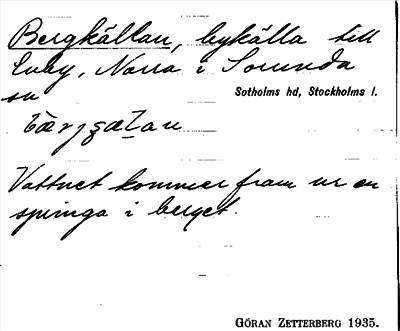 Bergkällan, bykälla till
Norra i Sorunda
sn
Sotholms hd, Stockholms l.
Vattnet kommer fram ur en
springa i berget.
GÖRAN ZETTERBERG 1935.